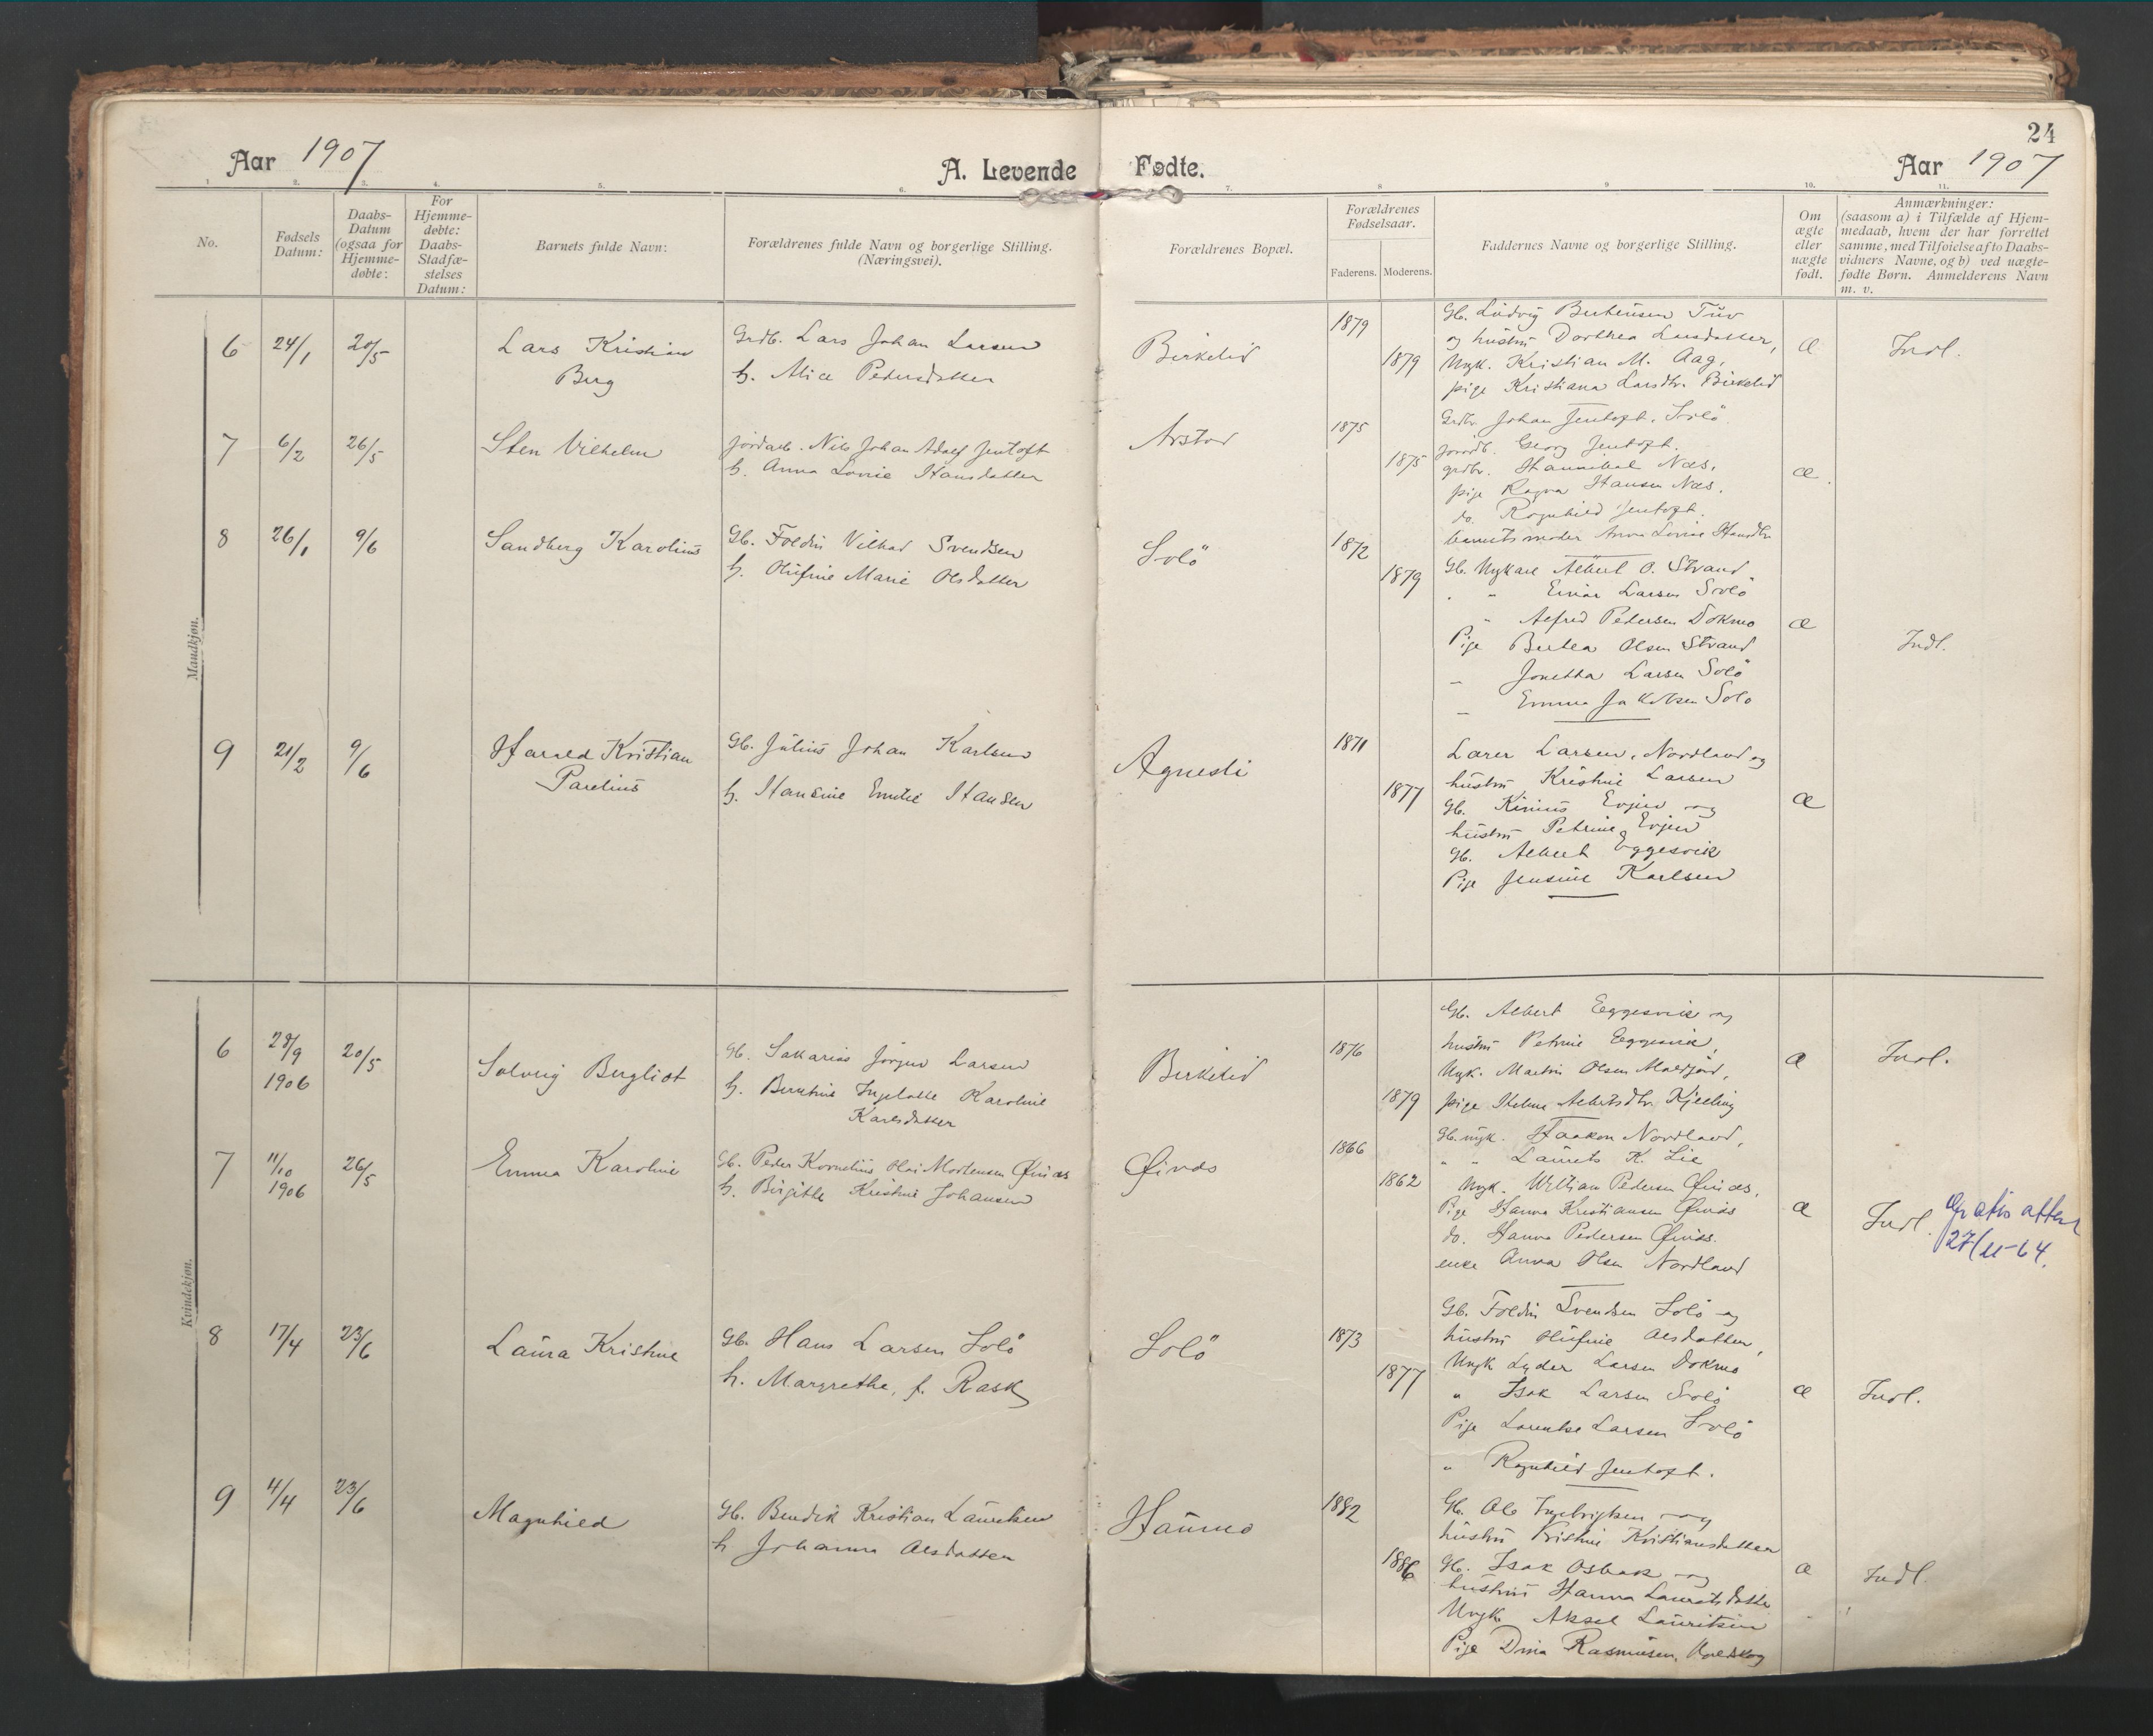 24
Aar 1907
A. Levende Fødte.
Aar 1907
1. 2. 3. 4. 5. 6. 7. 8 9 10. 11.
No.
Fødsels Datum:
Daabs-
Datum
(ogsaa for
Hjemme-
døbte:
For
Hjemme-
døbte:
Daabs-
Stadfæ-
stelses
Datum:
Barnets fulde Navn:
Forældrenes fulde Navn og borgerlige Stilling.
(Næringsvei).
Forældrenes Bopæl.
Forældrenes
Fødselsaar.
Faderens. Moderens.
Faddernes Navne og borgerlige Stilling.
Om
ægte
eller
uægte
født.
Anmærkninger:
(saasom a) i Tilfælde af Hjem-
medaab, hvem der har forrettet
samme, med Tilføielse af to Daabs-
vidners Navne, og b) ved uægte-
fødte Børn. Anmelderens Navn
m. v.
Mandkjøn.
6 24/1 20/5
Lars Kristian
Berg
Grdb. Lars Johan Larsen
h. Alice Pedersdatter
Birkelid
1879
1879
Gb. Ludvig Berteusen Tuv
og hustru Dorthea Larsdatter,
Ungk. Kristian M. Aag,
pige Kristiana Larsdtr. Birkelid
æ
Indl.
7 6/2 26/5
Sten Vilhelm
jordarb. Nils Johan Adolf Jentoft
h. Anna Lovise Hansdatter
Arstad
1875
1875
Grdbr. Johan Jentoft, Solö
jordb. Georg Jentoft.
grdbr. Hannibal Næs,
pige Ragna Hansen Næs.
do. Ragnhild Jentoft.
barnets moder Anna Lovise Hansdtr
æ.
8 26/1 9/6
Sandberg Karolius
Gb. Foldin Vilhad Svendsen
h. Olufine Marie Olsdatter
Solö
1872
1879
Gb. Ungkarl Albert O. Strand
" " Einar Larsen Solö
" Alfred Pedersen Dokmo
Pige Bertea Olsen Strand
" Jonetta Larsen Solö
" Emma Jakobsen Solö
æ
Indl.
9 21/2 9/6
Harald Kristian
Parelius
Gb. Julius Johan Karlsen
h. Hansine Emilie Hansen
Agnesli
1871
1877
Larer Larsen, Nordland og
hustru Kristine Larsen
Gb. Kinius Evjen og
hustru Petrine Evjen
Gb. Albert Eggesvik
Pige Jensine Karlsen
æ
Kvindekjøn.
6 28/9 1906 20/5
Solveig Bergliot
Gb. Sakarias Jörgen Larsen
h. Berntine Ingelotte Karoline
Karlsdatter
Birkelid
1876
1879
Gb. Albert Eggesvik og
hustru Petrine Eggesvik,
Ungk. Martin Olsen Maldjord,
pige Helma Albertsdtr. Kjelling
æ
Indl.
7 11/10 1906 26/5
Emma Karoline
Gb. Peder Kornelius Olai Mortensen Øinæs
h. Birgitte Kristine Johansen
Øinæs
1866
1862
Gb. ungk. Haakon Nordland,
" " Laurits K. Lie
Ungk. William Pedersen Øinæs,
Pige Hanna Kristiansen Øinæs
do. Hanna Pedersen Øinæs.
enke Anna Olsen Nordland
æ
Indl.
Gratis attest
27/11-64.
8 17/4 23/6
Laura Kristine
Gb. Hans Larsen Solö
h. Margrethe, f. Rask
Solö
1873
1877
Gb. Foldin Svendsen Solö og
hustru Olufine Olsdatter,
Ungk Lyder Larsen Dokmo
" Isak Larsen Solö
Pige Lorentse Larsen Solö
" Ragnhild Jentoft.
æ
Indl.
9 4/4 23/6
Magnhild
Gb. Bendik Kristian Lauritsen
h Johanna Olsdatter
Haunmo
1882
1886
Gb. Ole Ingebrigtsen og
hustru Kristine Kristiansdatter
Gb. Isak Osbak og
hustru Hanna Lauritsdatter
Ungk Aksel Lauritsen
Pige Dina Rasmusen,
æ
Indl.